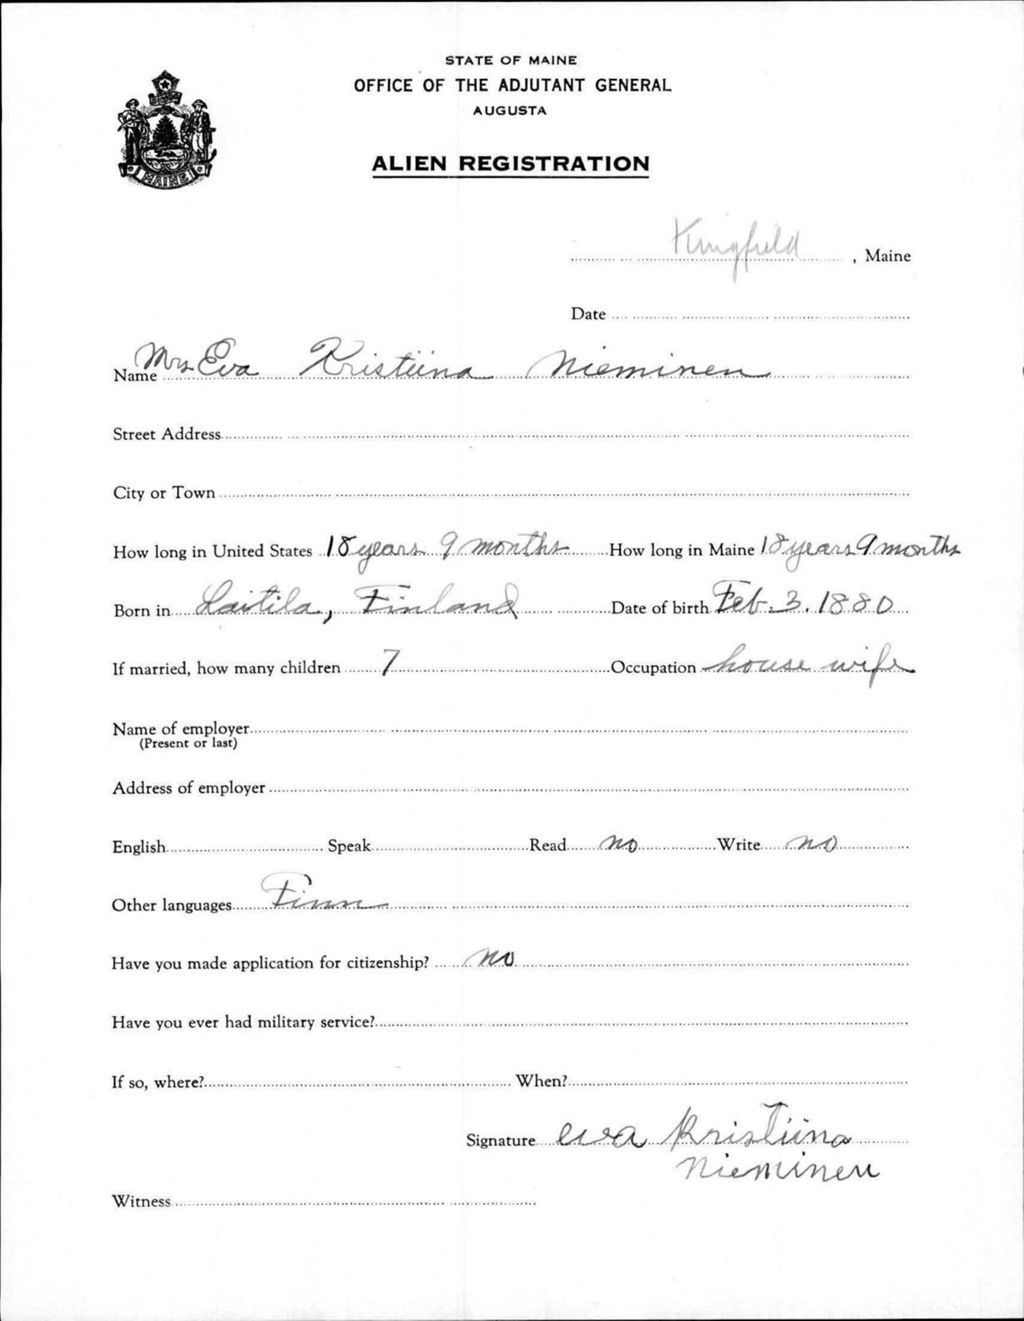 STATE OF MAINE
OFFICE OF THE ADJUTANT GENERAL
AUGUSTA
ALIEN REGISTRATION
MAINE
Kingfield, Maine
Date
Name Mrs Eva Kristiina Nieminen
Street Address
City or Town
How long in United States 18 years 9 months How long in Maine 18 years 9 months
Born in Laitila, Finland Date of birth Feb. 3. 1880
If married, how many children 7 Occupation house wife
Name of employer
(Present or last)
Address of employer
English Speak Read no Write no
Other languages Finn
Have you made application for citizenship? no
Have you ever had military service?
If so, where? When?
Signature Eva Kristiina
Nieminen
Witness